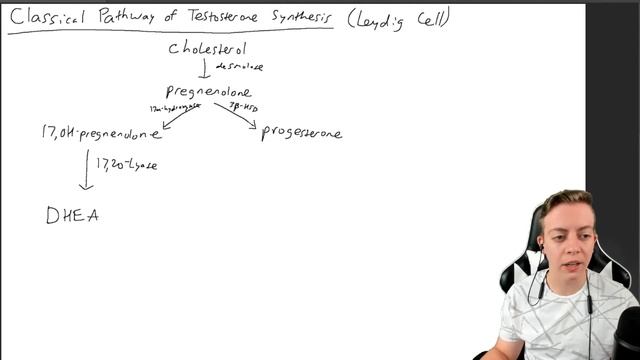 Classical Pathway of Testosterone Synthesis (Leydig Cell)
Cholesterol
desmolase
pregnenolone
17α-hydroxylase 3β-HSD
17,OH-pregnenolone progesterone
17,20-Lyase
DHEA